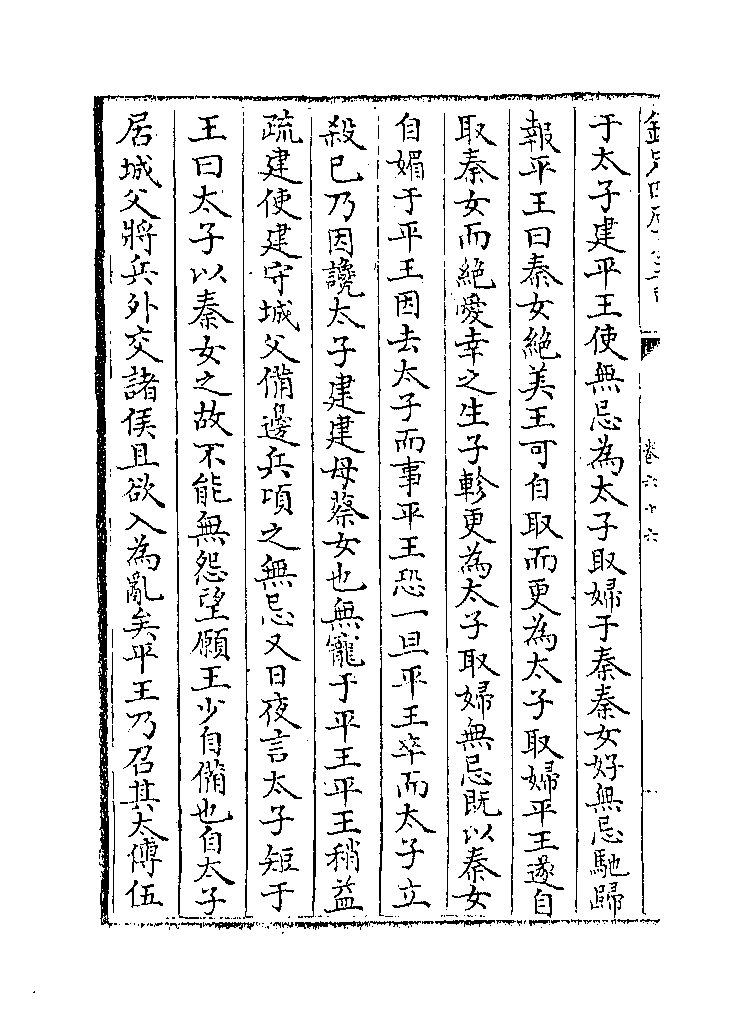 欽定四庫全書
卷六十六
于太子建平王使無忌為太子取婦于秦秦女好無忌馳歸
報平王曰秦女絕美王可自取而更為太子取婦平王遂自
取秦女而絕愛幸之生子軫更為太子取婦無忌既以秦女
自媚于平王因去太子而事平王恐一旦平王卒而太子立
殺已乃因讒太子建建母蔡女也無寵于平王平王稍益
疏建使建守城父備邊兵頃之無忌又日夜言太子短于
王曰太子以秦女之故不能無怨望願王少自備也自太子
居城父將兵外交諸侯且欲入為亂矣平王乃召其太傅伍